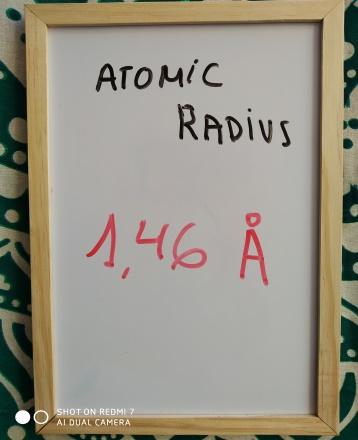 ATOMIC
RADIUS
1,46 Å
SHOT ON REDMI 7
AI DUAL CAMERA